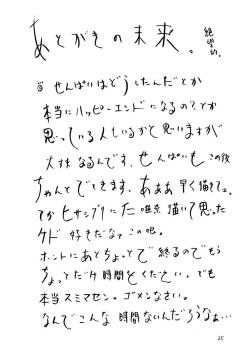 あとがきの未来。絶望的。
⑤ せんぱいはどうしたんだとか
本当にハッピーエンドになるの？とか
思っている人もいるかと思いますが
大体なるんです、せんぱいもこの後
ちゃんとでてきます。あああ早く描きてェ。
てかヒサシブリに 描いて思った
ケド 好きだなァこの唄。
ホントにあとちょっとで終るのでもう
ちょっとだけ時間をください。でも
本当スミマセン。ゴメンなさい。
なんでこんな時間ないんだろうなぁ…
25